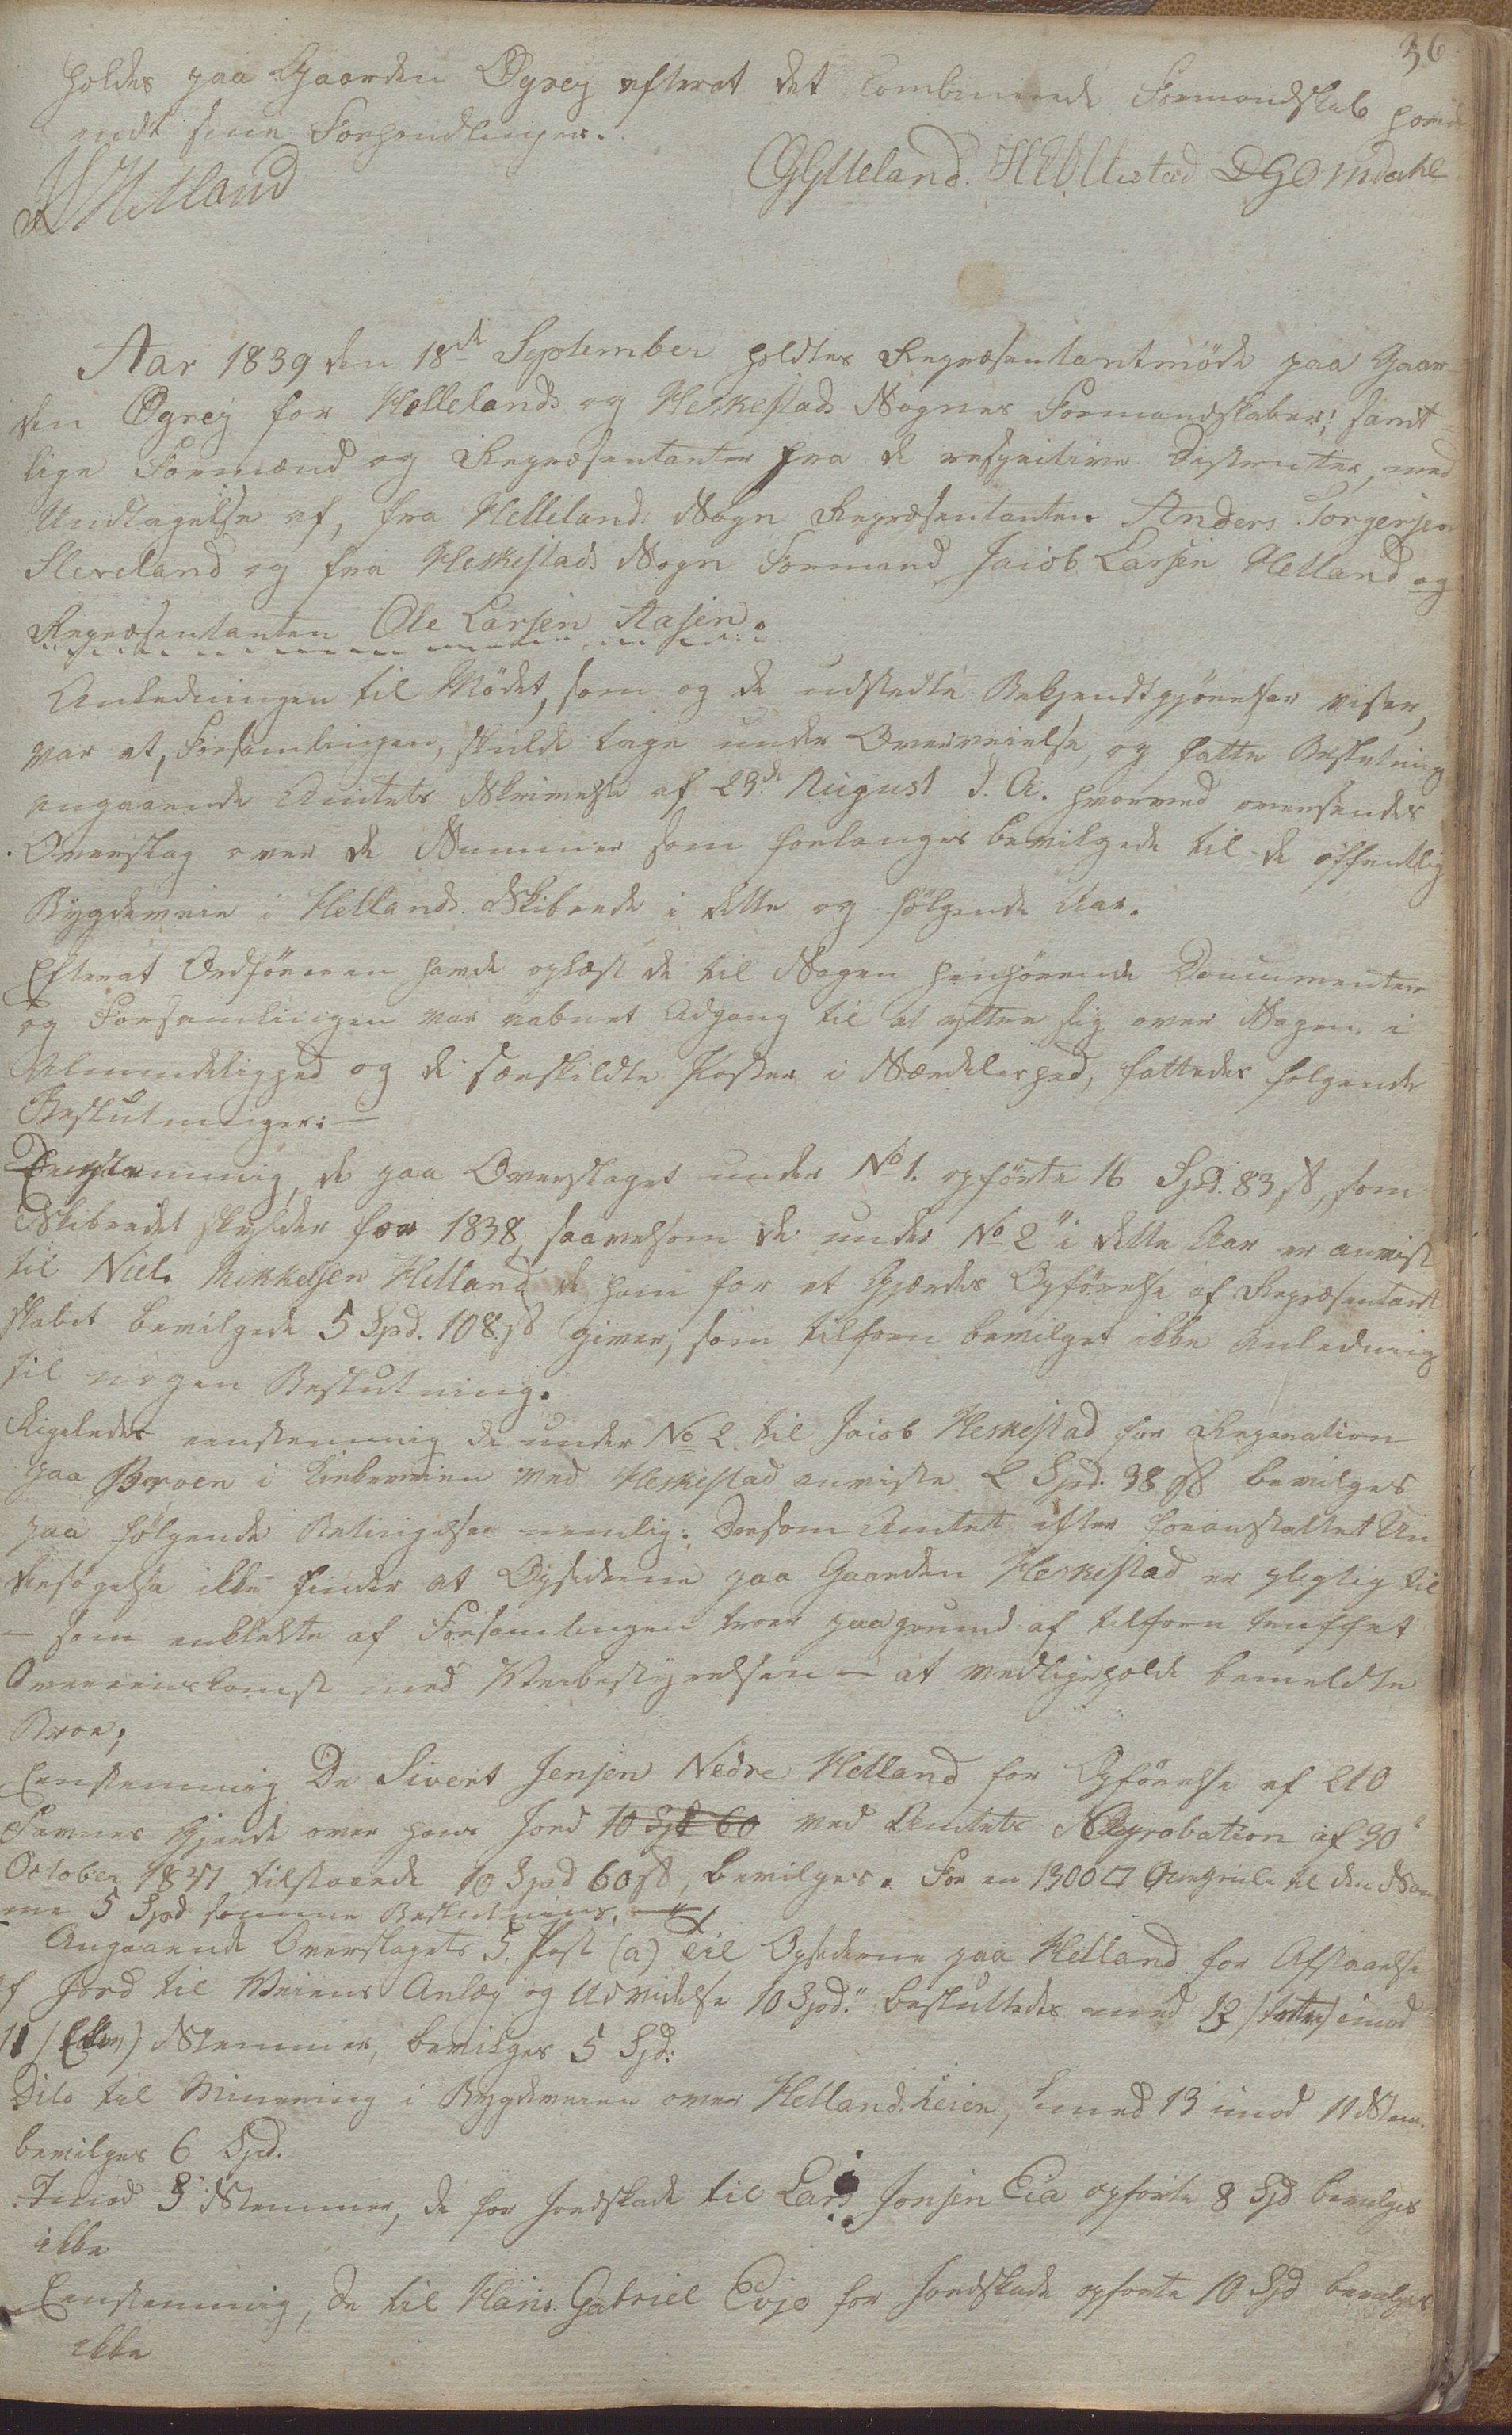 36
holdes paa Gaarden Øgrey efterat det combinerede Formandskab havde
endt sine Forhandlinger.
Hetland GGylleland. DGOmdahl
Aar 1839 den 18de September holdtes Repræsentantmøde paa Gaar-
den Øgrey for Hellelands og Heskestads Sognes Formandskaber; samt-
lige Formænd og Repræsentanter fra de respective Districter, med
Undtagelse af, fra Hellelands Sogn Repræsentanten Anders Torgersen
Sleveland og fra Heskestads Sogn Formand Jacob Larsen Helland og
Repræsentanten Ole Larsen Aasen.
Anledningen til Mødet, som og de udstedte Bekjendtgjørelser viser,
var at, Forsamlingen, skulde tage under Overveielse, og fatte Beslutning
angaaende Amtets Skrivelse af 23de August d. A. hvorved oversendes
Overslag over de Summer som forlanges bevilgede til de offentlig
Bygdeveie i Hetlands Skibrede i dette og følgende Aar.
Efterat Ordføreren havde oplæst de til Sagen henhørende Documenter
og Forsamlingen var aabnet Adgang til at yttre sig over Sagen i
Almindelighed og de særskildte Poster i Særdeleshed, fattedes følgende
Beslutninger:—
Eenstemmig, de paa Overslaget under No 1. opførte 16 Spd. 83 ß, som
Skibredet skylder for 1838, saavelsom de under No 2 i dette Aar er anvist
til Niels Mikkelsen Helland de ham for et Gjærdes Opførelse af Repræsentant-
skabet bevilgede 5 Spd. 108 ß giver, som tilforn bevilget ikke Anledning
til nogen Beslutning.
Ligeledes eenstemmig de under No 2. til Jacob Heskestad for Reparation
paa Broen i Kirkeveien ved Heskestad anviste 2 Spd. 38 ß bevilges
paa følgende Betingelse nemlig: Dersom Amtet efter foranstaltet Un-
dersøgelse ikke finder at Opsidderne paa Gaarden Heskestad er pligtig til
— som enkelte af Forsamlingen troer paagrund af tilforn truffet
Overeenskomst med Veibestyrelsen — at vedligeholde bemeldte
Broe;
Eenstemmig De Sivert Jensen Nedre Helland for Opførelse af 210
Favnes Gjerde over hans Jord 10 Spd 60 ved Amtets Approbation af 30
October 1837 tilstaaede 10 Spd 60 ß, bevilges. For en 1300 □ til den Sam-
me 5 Spd samme Beslutning.
Angaaende Overslagets 5. Post (a) til Opsidderne paa Helland for Afstaaelse
af Jord til Veiens Anlæg og Udvidelse 10 Spd. besluttedes med 13 imod
11 (Elleve) Stemmer, bevilges 5 Spd:
Dito til Minering i Bygdeveien over Hellandsheien, med 13 imod 11 Stem.
bevilges 6 Spd.
Imod 3 Stemmer, de for Jordskade til Lars Jonsen Eia opførte 8 Spd bevilges
ikke
Eenstemmig, de til Hans Gabriel Evjo for Jordskade opførte 10 Spd bevilges
ikke